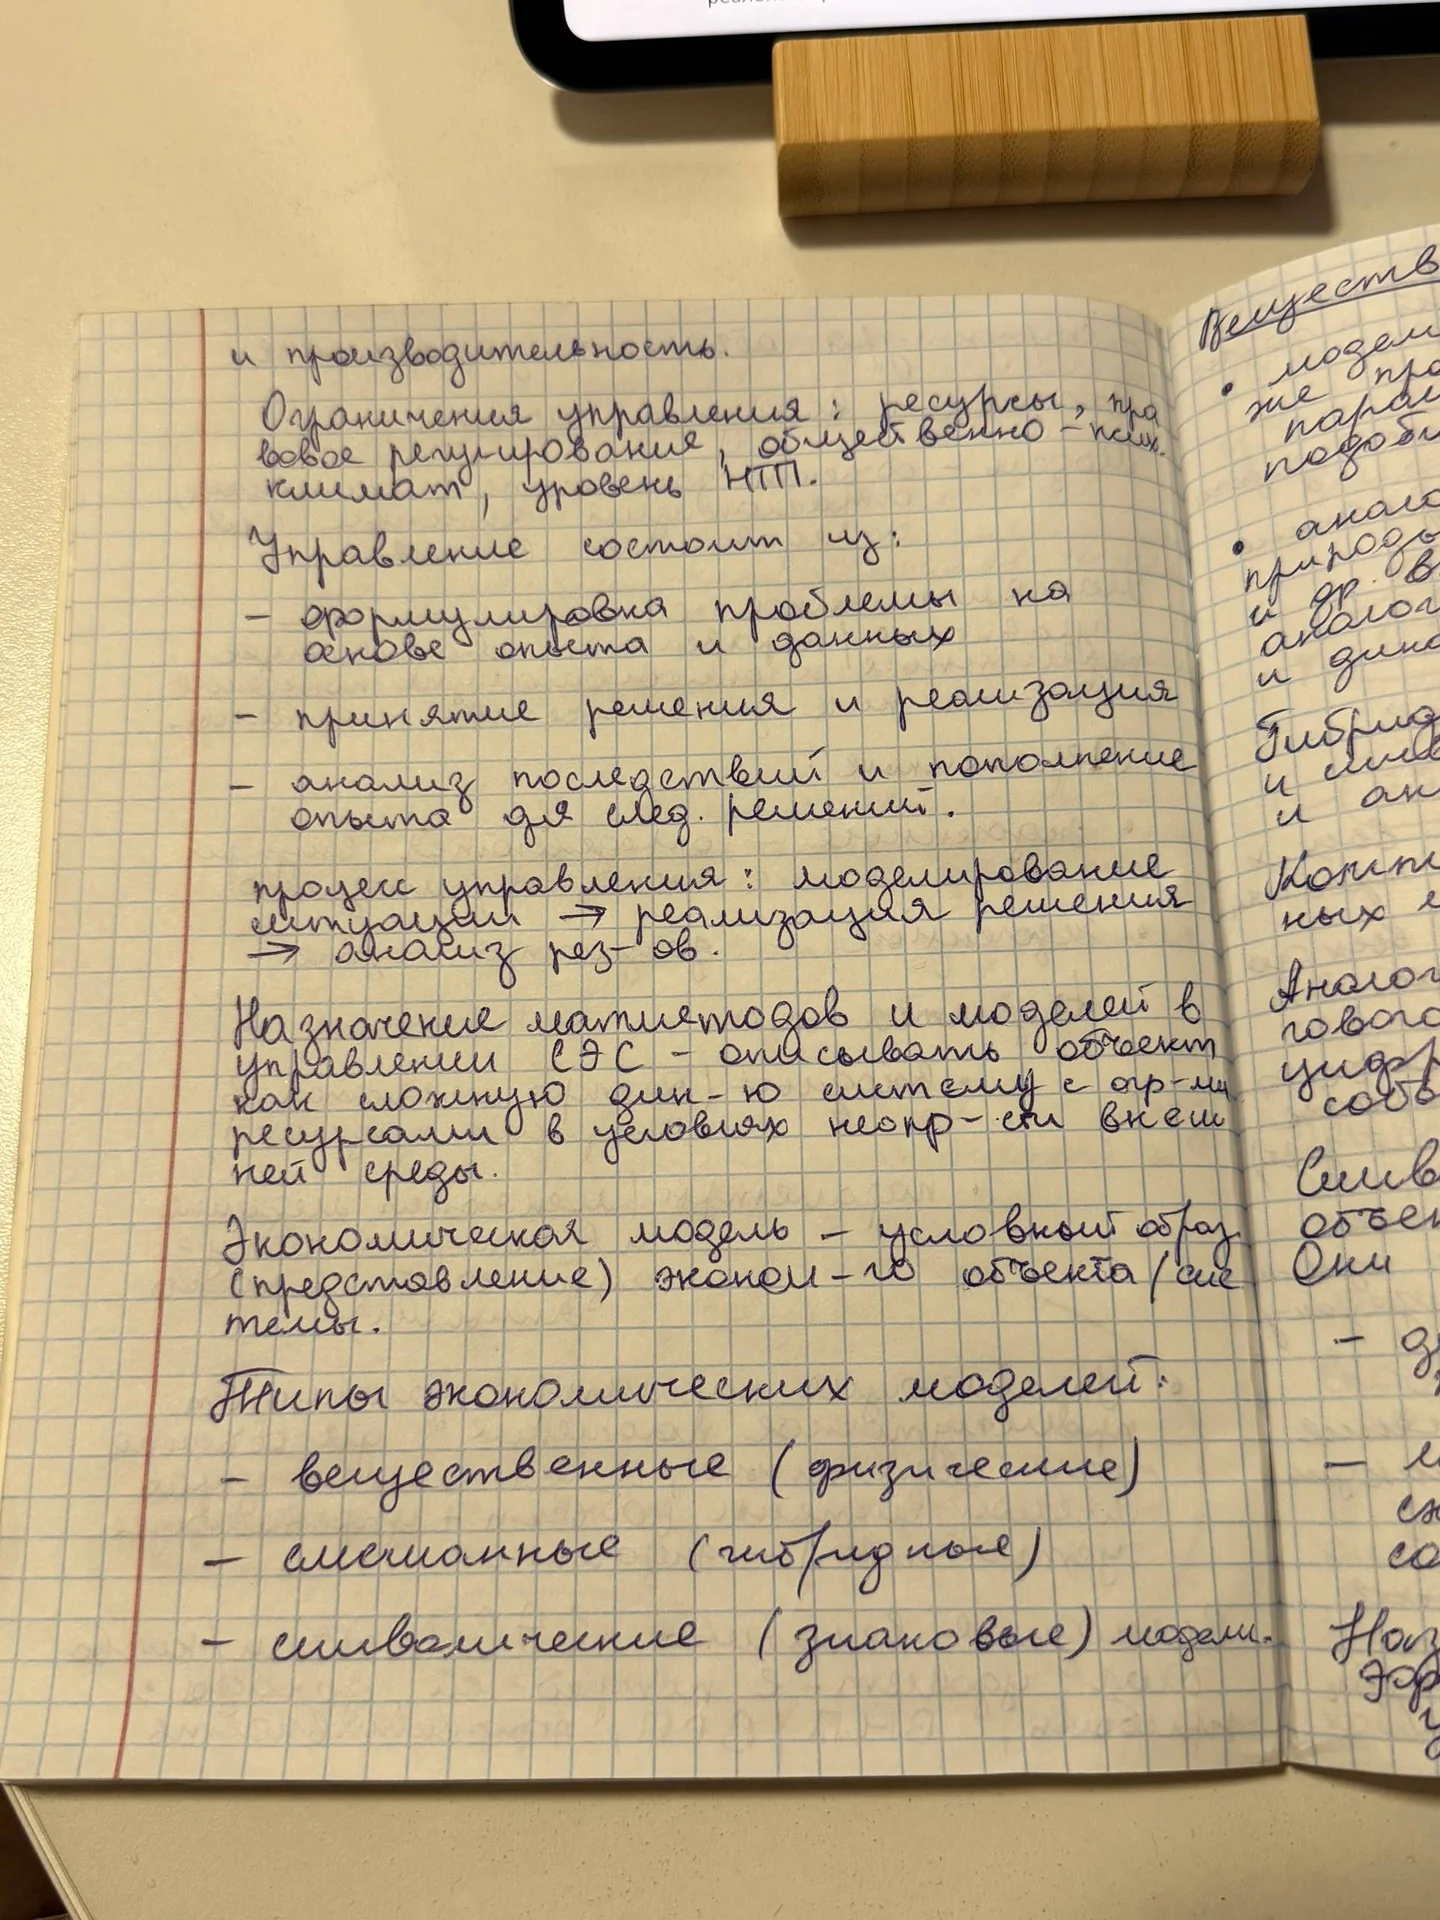 и производительность.
Ограничения управления: ресурсы, пра
вовое регулирование, общественно-псих.
климат, уровень НТП.
Управление состоит из:
- формулировка проблемы на
основе опыта и данных
- принятие решения и реализация
- анализ последствий и пополнение
опыта для след. решений.
процесс управления: моделирование
ситуации → реализация решения
→ анализ рез-ов.
Назначение матметодов и моделей в
управлении СЭС - описывать объект
как сложную дин-ю систему с огр-ми
ресурсами в условиях неопр-сти внеш
ней среды.
Экономическая модель - условный образ
(представление) эконом-го объекта/сис
темы.
Типы экономических моделей:
- вещественные (физические)
- смешанные (гибридные)
- символические (знаковые) модели.
Веществ
• модел
же про
парам
подоби
• анало
природы
и др. в
аналог
и дина
Гибрид
и
и ан
ных
Аналог
гового
цифр
собо
Симв
объек
Они